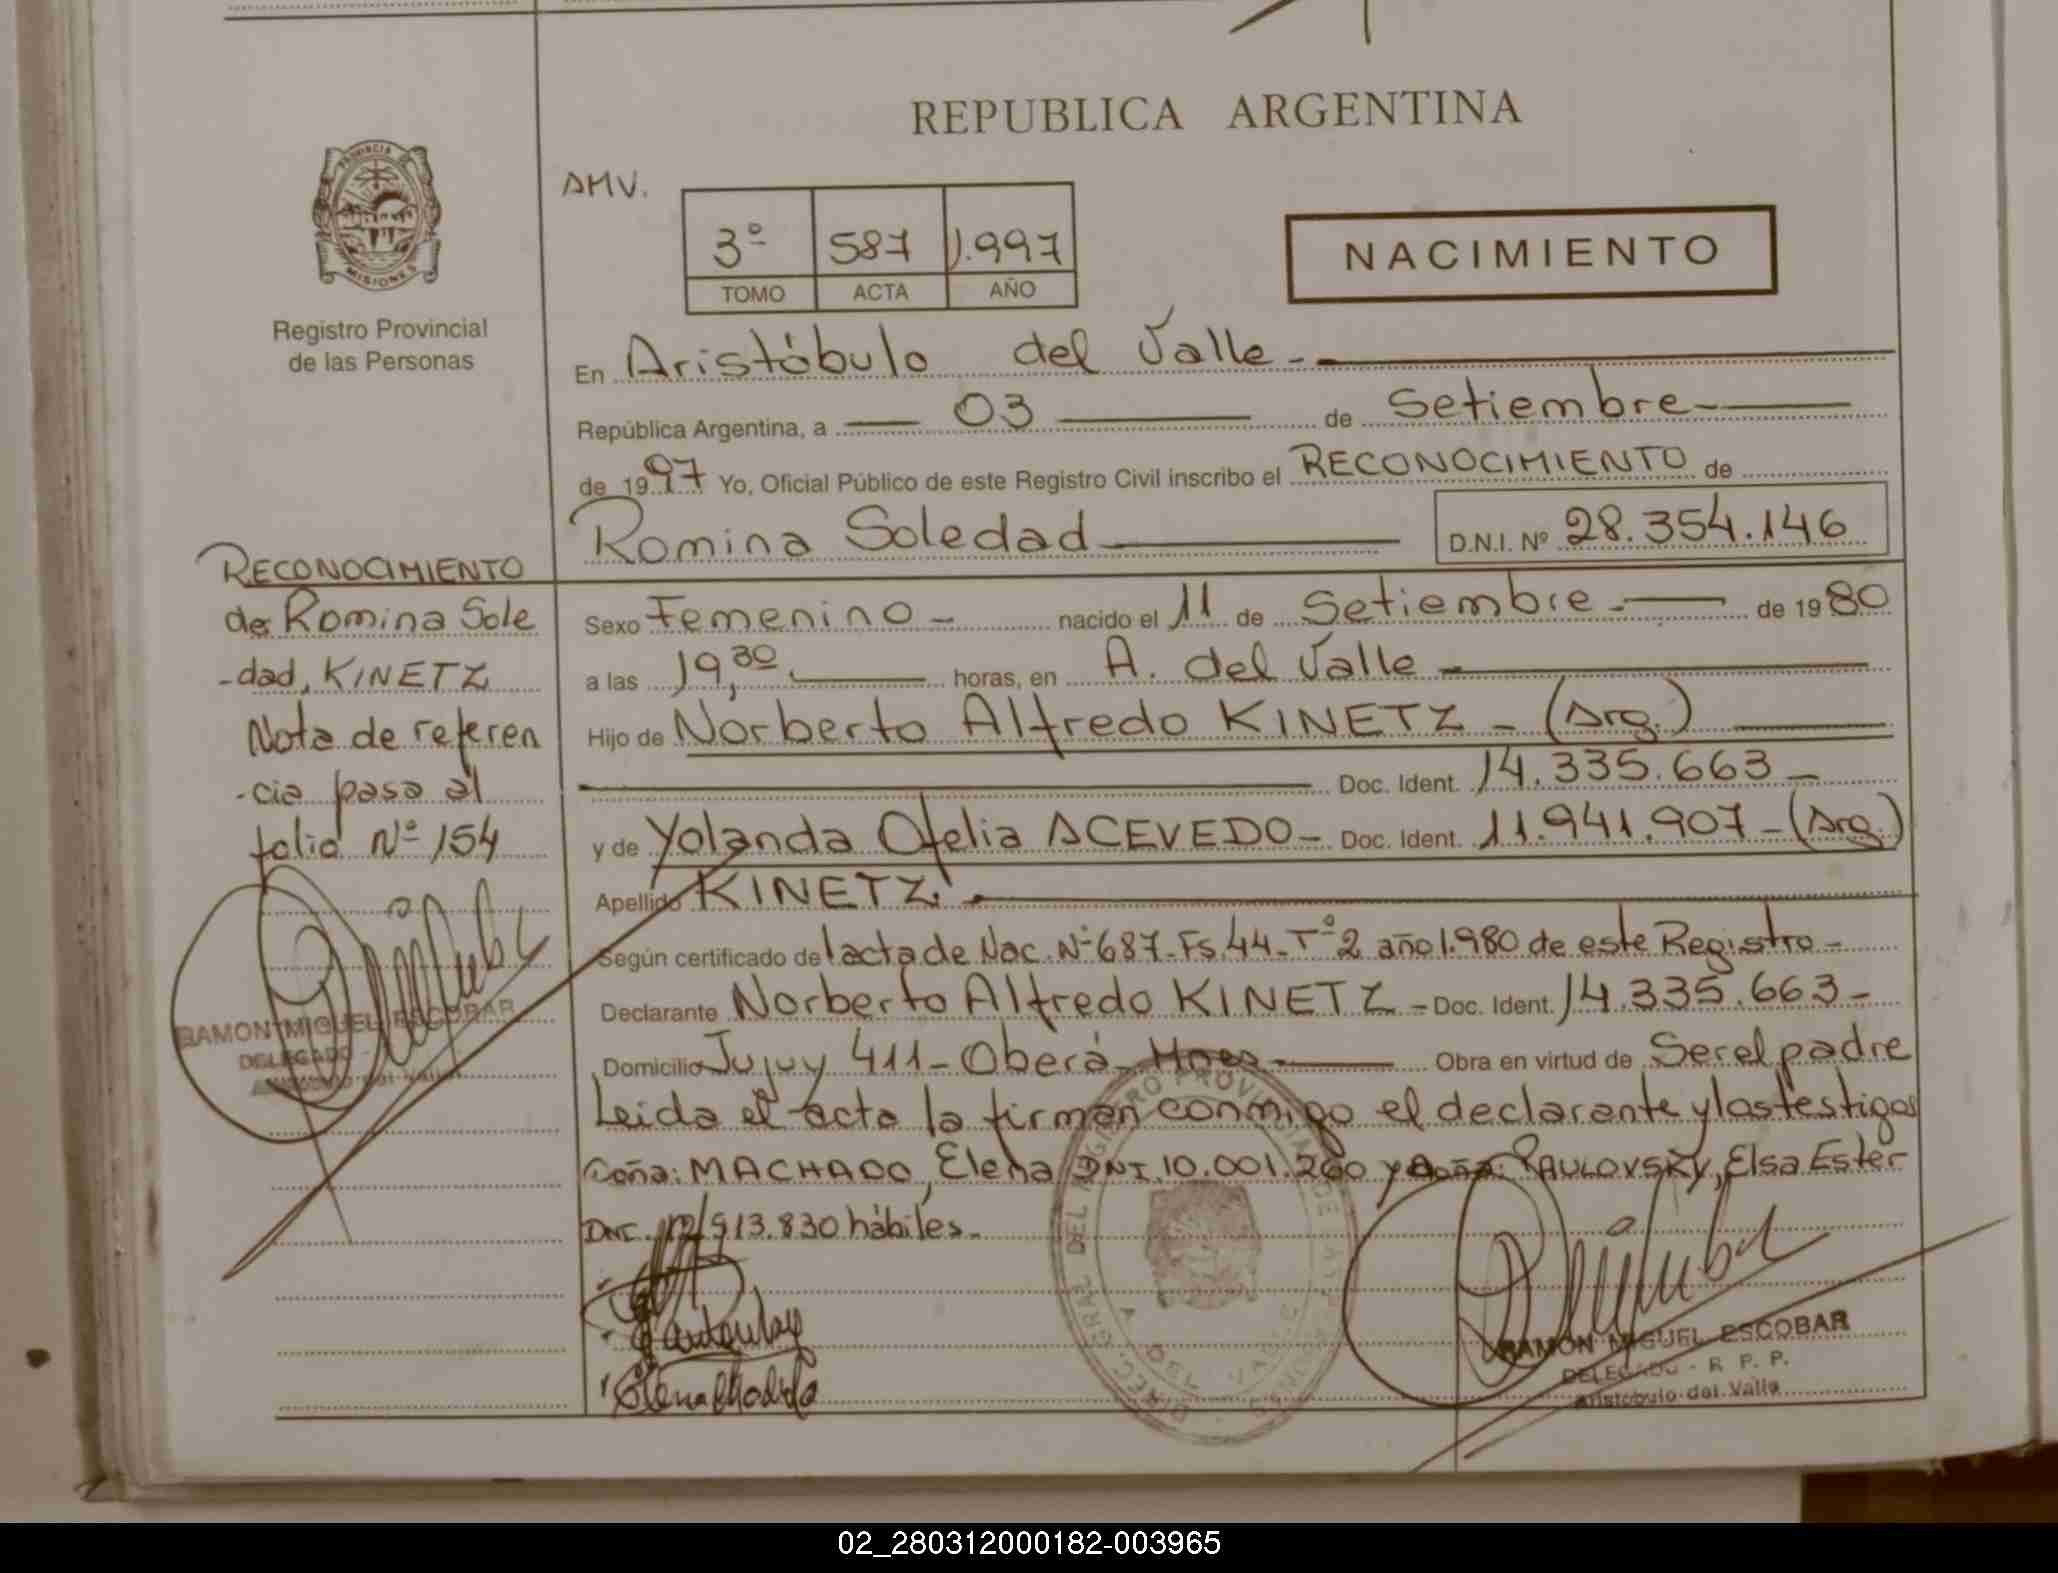 REPUBLICA ARGENTINA
PROVINCIA DE MISIONES
Registro Provincial
de las Personas
AMV.
3º 587 1.997
TOMO ACTA AÑO
NACIMIENTO
En Aristóbulo del Valle -
República Argentina, a 03 de Setiembre
de 1997 Yo, Oficial Público de este Registro Civil inscribo el RECONOCIMIENTO de
Romina Soledad
D.N.I. Nº 28.354.146
RECONOCIMIENTO
de Romina Sole
-dad, KINETZ
Nota de referen
-cia pasa al
folio Nº 154
RAMON MIGUEL ESCOBAR
DELEGADO
Sexo Femenino - nacido el 11 de Setiembre - de 1980
a las 19,30 horas, en A. del Valle
Hijo de Norberto Alfredo KINETZ - (Arg.)
Doc. Ident. 14.335.663 -
y de Yolanda Ofelia ACEVEDO - Doc. Ident. 11.941.907 - (Arg.)
Apellido KINETZ.
Según certificado de l acta de Nac. Nº 687 - Fs. 44 - Tº 2 año 1.980 de este Registro -
Declarante Norberto Alfredo KINETZ - Doc. Ident. 14.335.663 -
Domicilio Jujuy 411 - Oberá - Obra en virtud de Ser el padre
Leida el acta la firman conmigo el declarante y las testigos
Doña: MACHADO, Elena DNI. 10.001.260 y doña: PAULOVSKY, Elsa Ester
DNI. 12.913.830 hábiles -
RAMON MIGUEL ESCOBAR
DELEGADO - R. P. P.
Aristóbulo del Valle
02_280312000182-003965